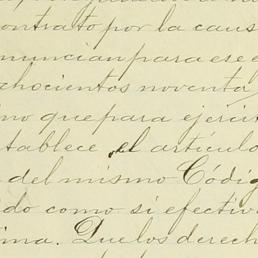 contrato por la caus
nuncian para ese e
chocientos noventa
no que para ejercit
tablece el artículo
del mismo Códig
do como si efectiv
ima. Que los derech